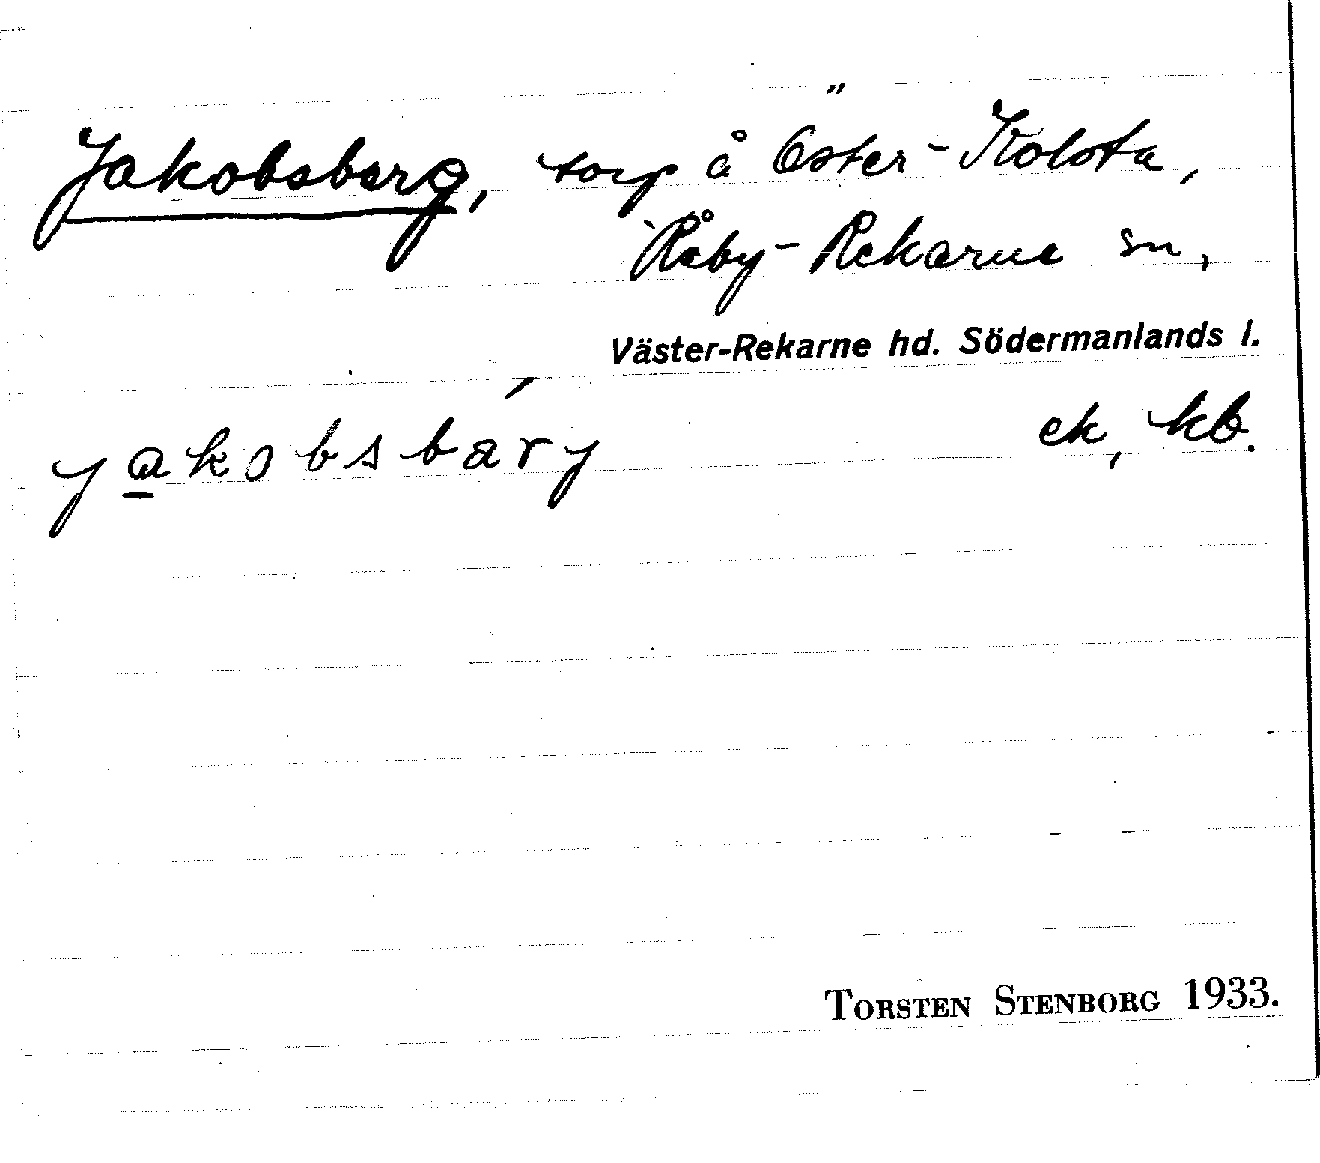 Jakobsberg, torp å Öster-Kolsta,
Råby-Rekarne sn,
Väster-Rekarne hd. Södermanlands l.
jakobsbárj ek, kb.
TORSTEN STENBORG 1933.